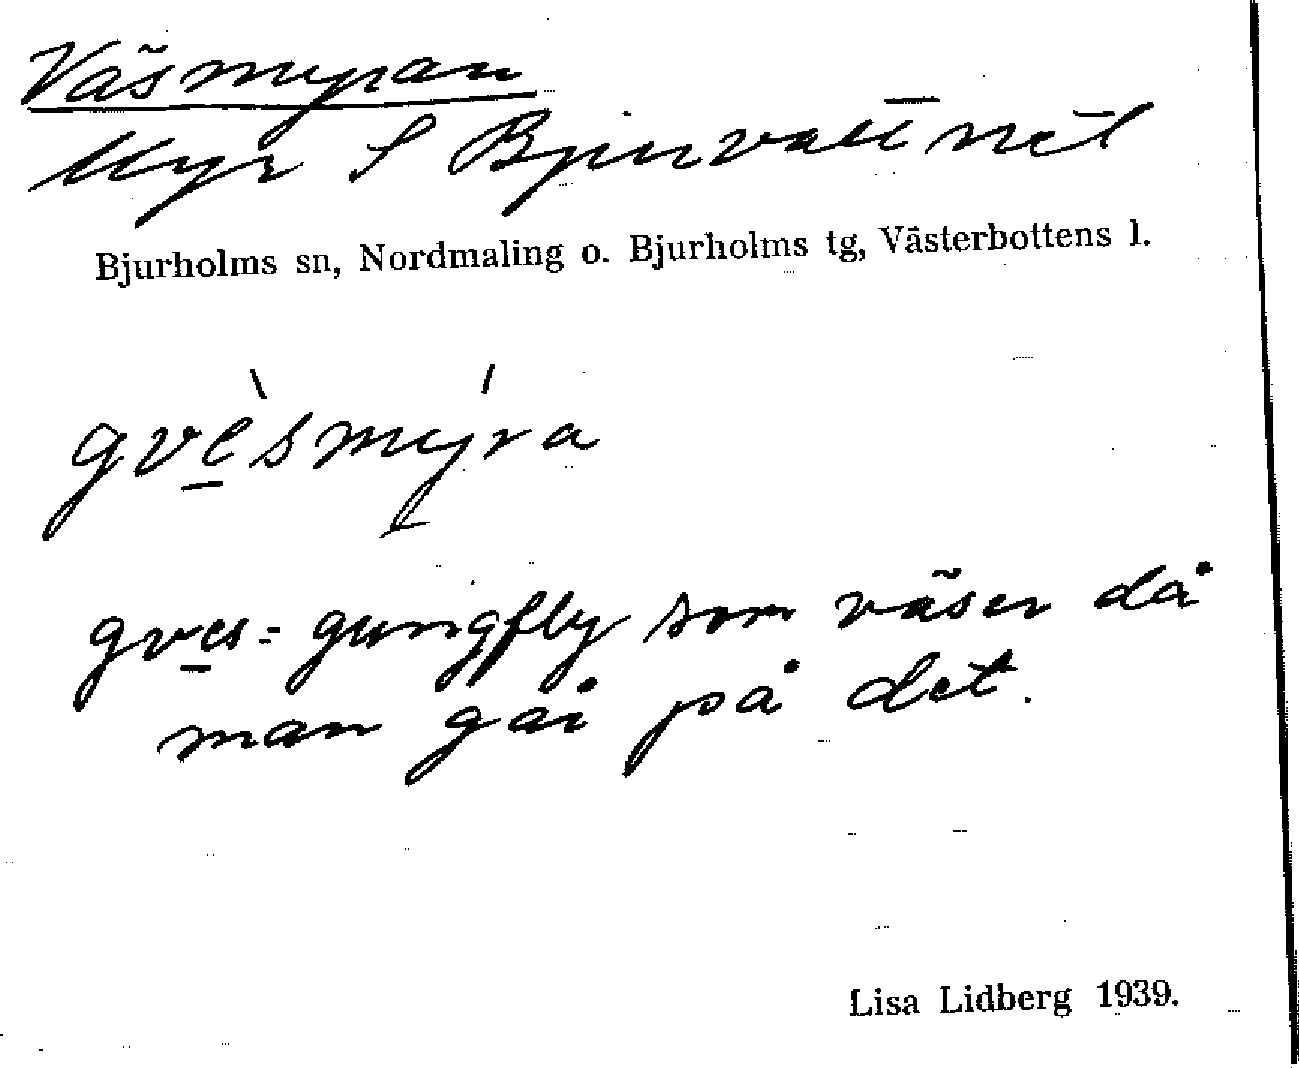 Väsmyran
Myr S Bjurvattnet
Bjurholms sn, Nordmaling o. Bjurholms tg, Västerbottens l.
gvè̲smý̲ra
gve̲s = gungfly som väser då
man går på det.
Lisa Lidberg 1939.